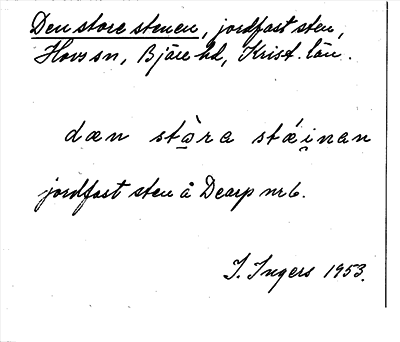 Den store stenen, jordfast sten,
Hovs sn, Bjäre hd, Krist. län.
dæn stò̱ra stǽi̯nan
jordfast sten å Dearp nr 6.
I. Ingers 1953.